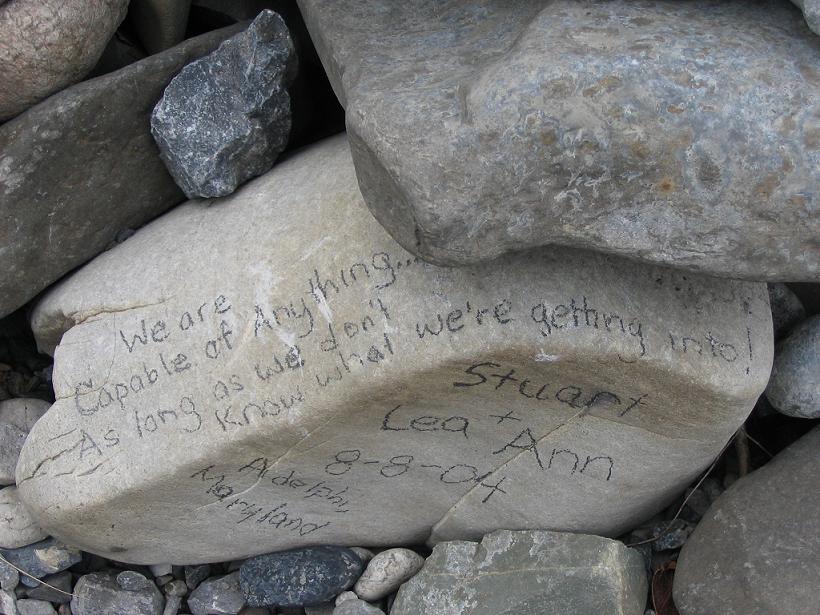 We are
Capable of Anything...
As long as we don't
Know what we're getting into!
Stuart
+
Lea Ann
8-8-04
Adelphi,
Maryland